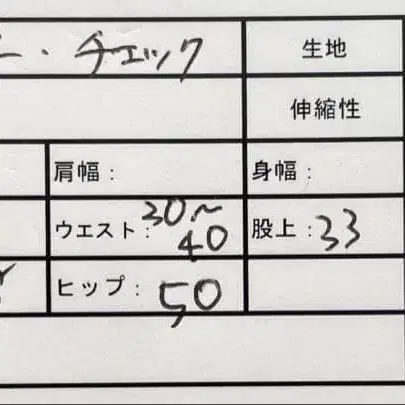 ー・チェック
生地
伸縮性
肩幅：
身幅：
ウエスト：30〜40
股上：33
ヒップ：50